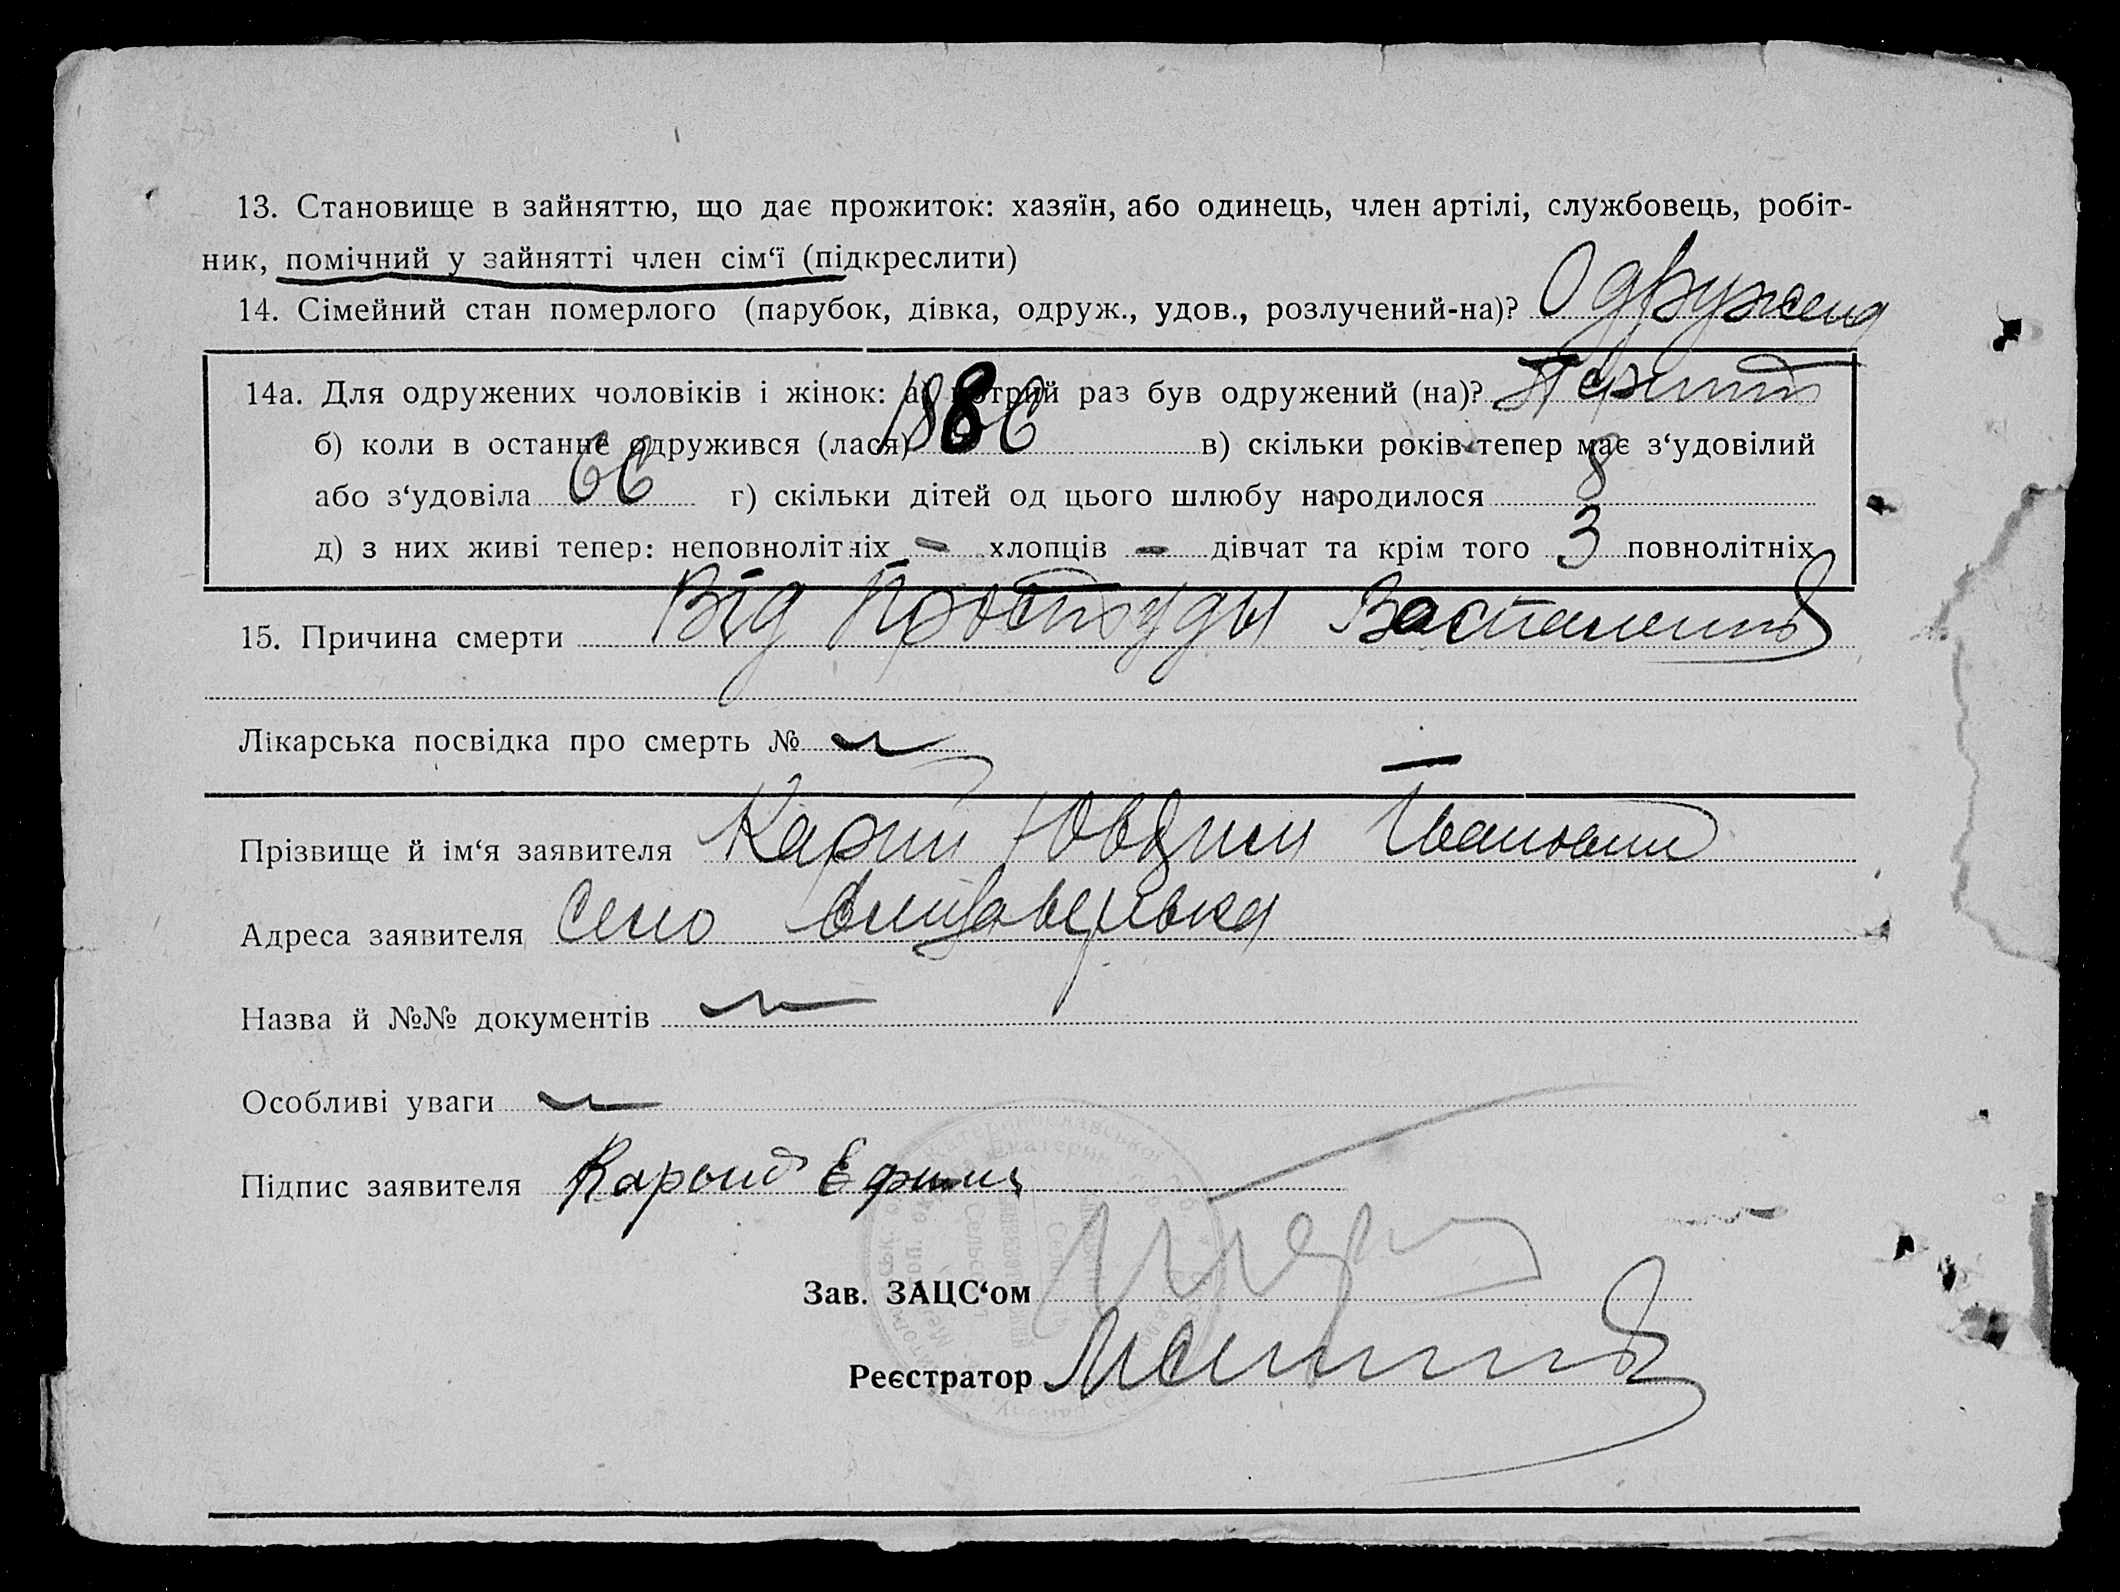 13. Становище в зайняттю, що дає прожиток: хазяїн, або одинець, член артілі, службовець, робіт-
ник, помічний у зайнятті член сім‘ї (підкреслити)
14. Сімейний стан померлого (парубок, дівка, одруж., удов., розлучений-на)? Одружена
14а. Для одружених чоловіків і жінок: а) котрий раз був одружений (на)? Перший
б) коли в останнє одружився (лася) 1886 в) скільки років тепер має з‘удовілий
або з‘удовіла 66 г) скільки дітей од цього шлюбу народилося 8
д) з них живі тепер: неповнолітніх – хлопців – дівчат та крім того 3 повнолітніх
15. Причина смерти Від Простуды
Лікарська посвідка про смерть №
Прізвище й ім‘я заявителя Карий Иванович
Адреса заявителя Село Єлизаветівка
Назва й №№ документів
Особливі уваги
Підпис заявителя Карый Ефим
Зав. ЗАЦС‘ом
Реєстратор